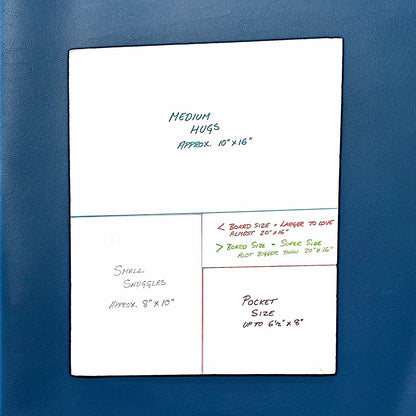 MEDIUM
HUGS
APPROX. 10" X 16"
< BOARD SIZE - LARGER TO LOVE
ALMOST 20" X 16"
> BOARD SIZE - SUPER SIZE
ALOT BIGGER THAN 20" X 16"
SMALL
SNUGGLES
APPROX. 8" X 10"
POCKET
SIZE
UP TO 6½" X 8"